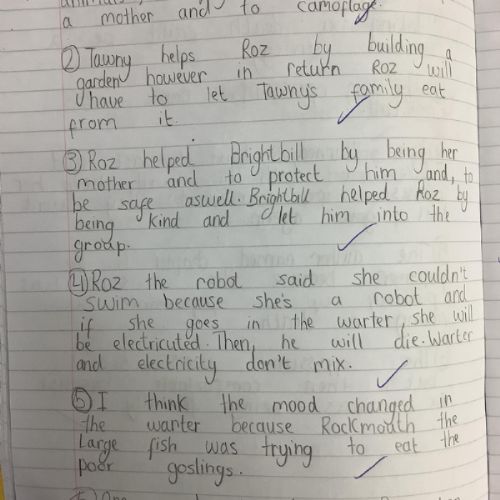 a mother and to camoflage.
② Tawny helps Roz by building a
garden however in return Roz will
have to let Tawny's family eat
from it.
③ Roz helped Brightbill by being her
mother and to protect him and, to
be safe aswell. Brightbill helped Roz by
being kind and let him into the
group.
④ Roz the robot said she couldn't
swim because she's a robot and
if she goes in the warter, she will
be electricuted. Then, he will die. Warter
and electricity don't mix.
⑤ I think the mood changed in
the warter because Rockmouth the
Large fish was trying to eat the
poor goslings.